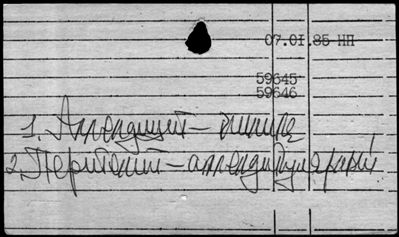 07.01.85 НП
59645
59646
1. Аппендицит – клиника
2. Перитонит – аппендикулярный